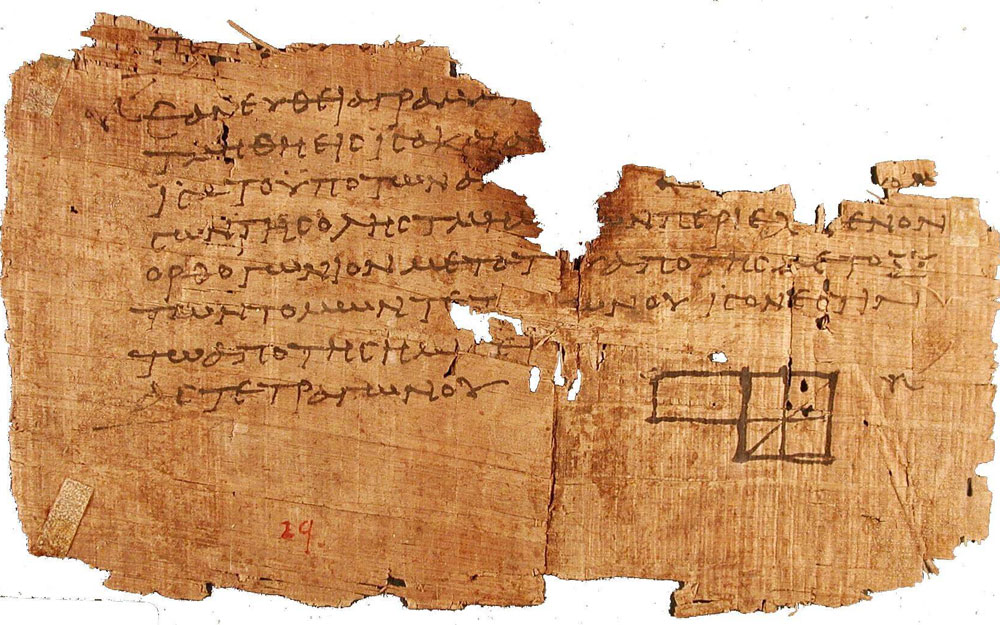 ΕΑΝΕΥΘΕΙΑΓΡΑΜΜ
ΤΜΗΘΗΕΙϹΙϹΑΚΑΙΑ
ΙϹΑΤΟΥΠΟΤΩΝΑ
ϹΩΝΤΗϹΟΛΗϹΤΜΗΜ ΩΝΠΕΡΙΕΧ ΜΕΝΟΝ
ΟΡΘΟΓΩΝΙΟΝΜΕΤΟΤ ΑΠΟΤΗϹΜΕΤΟΞΥ
ΤΩΝΤΟΜΩΝΤΕΤ ΩΝΟΥΙϹΟΝΕϹΤΙΝ
ΤΩΑΠΟΤΗϹΗΜΙ
ΑϹΤΕΤΡΑΓΩΝΟΥ
29.